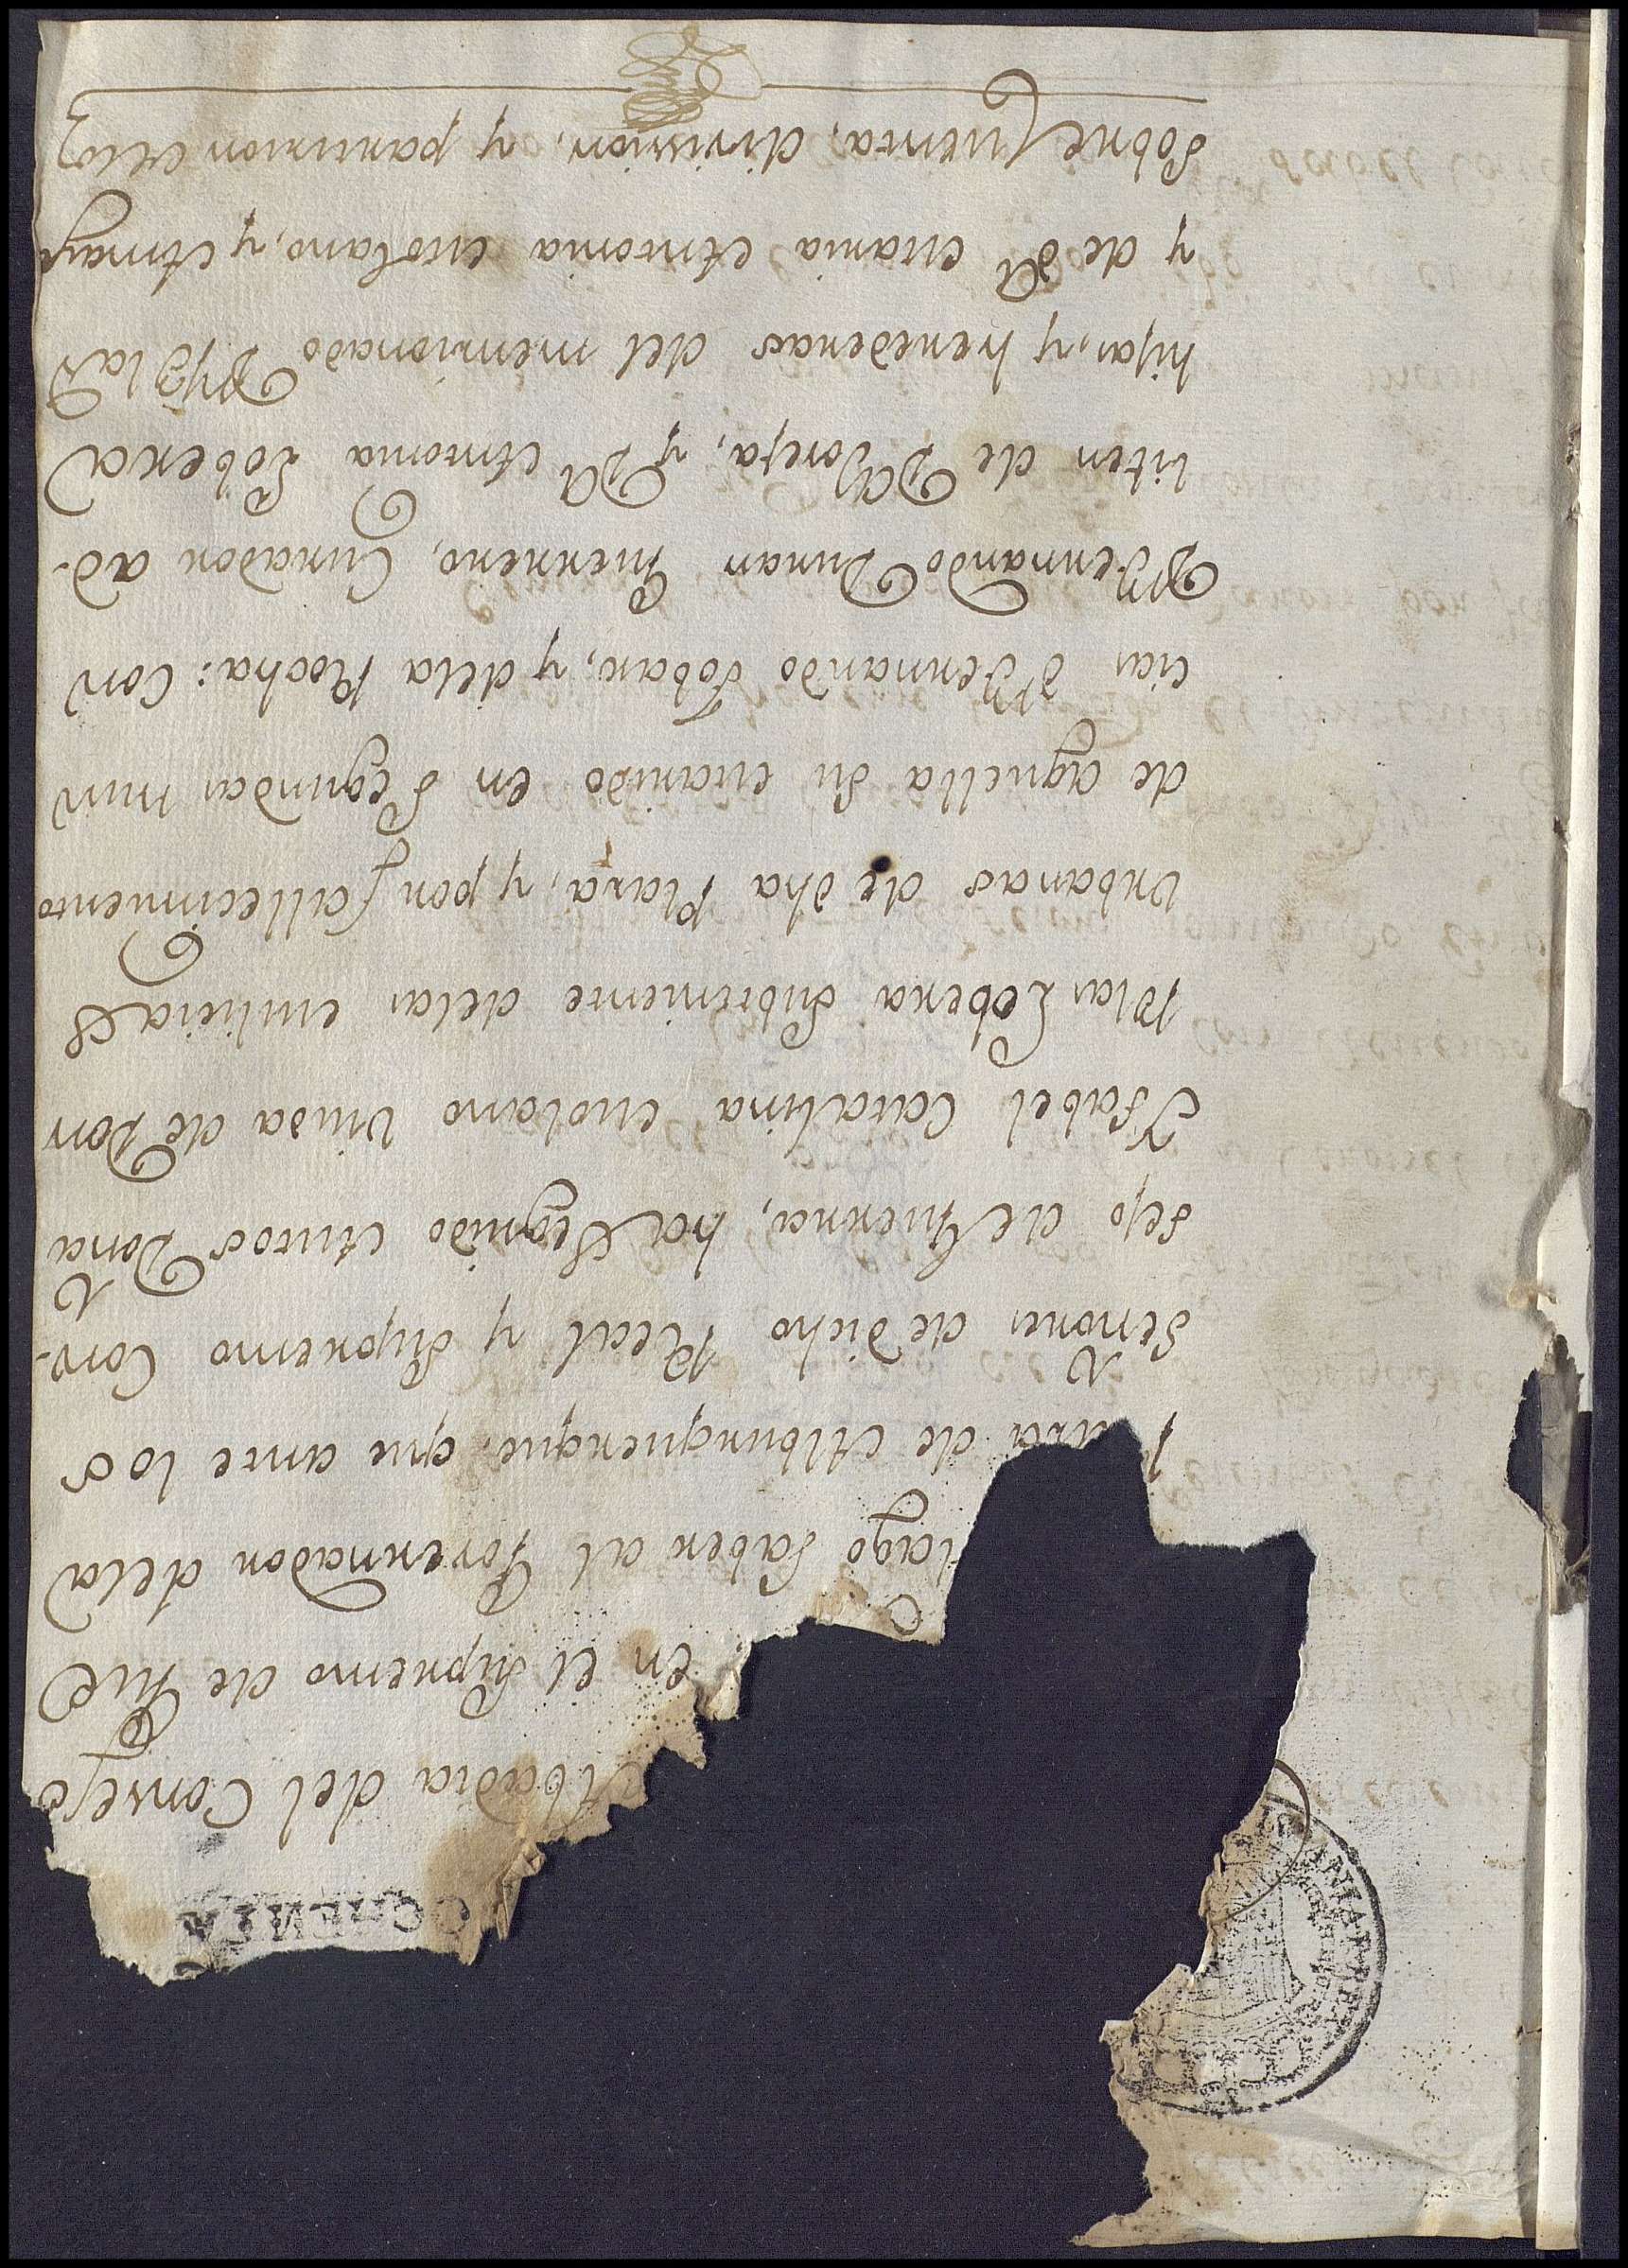 OCHENTA
Abadia del Consejo
en el Supremo de Gue
Hago Saber al Governador dela
Plaza de Alburquerque, que ante los
Señores de dicho Real y Supremo Con-
sejo de Guerra, ha Seguido Autos Doña
Ysabel Catalina Molano Viuda de Don
Blas Lobera Subteniente delas Milicias
Urbanas de dha Plaza, y por fallecimiento
de aquella Su Marido en Segundas nun
cias Dn Fernando Tobar, y dela Rocha: Con
Dn Fernando Duran Guerrero, Curador ad-
litem de Da Josefa, y Da Antonia Lobera
hijas, y herederas del mencionado Dn Blas
y de Da Maria Antonia Molano, y Amaya
Sobre Cuenta, division, y particion de los